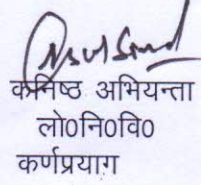 कनिष्ठ अभियन्ता
लो0नि0वि0
कर्णप्रयाग